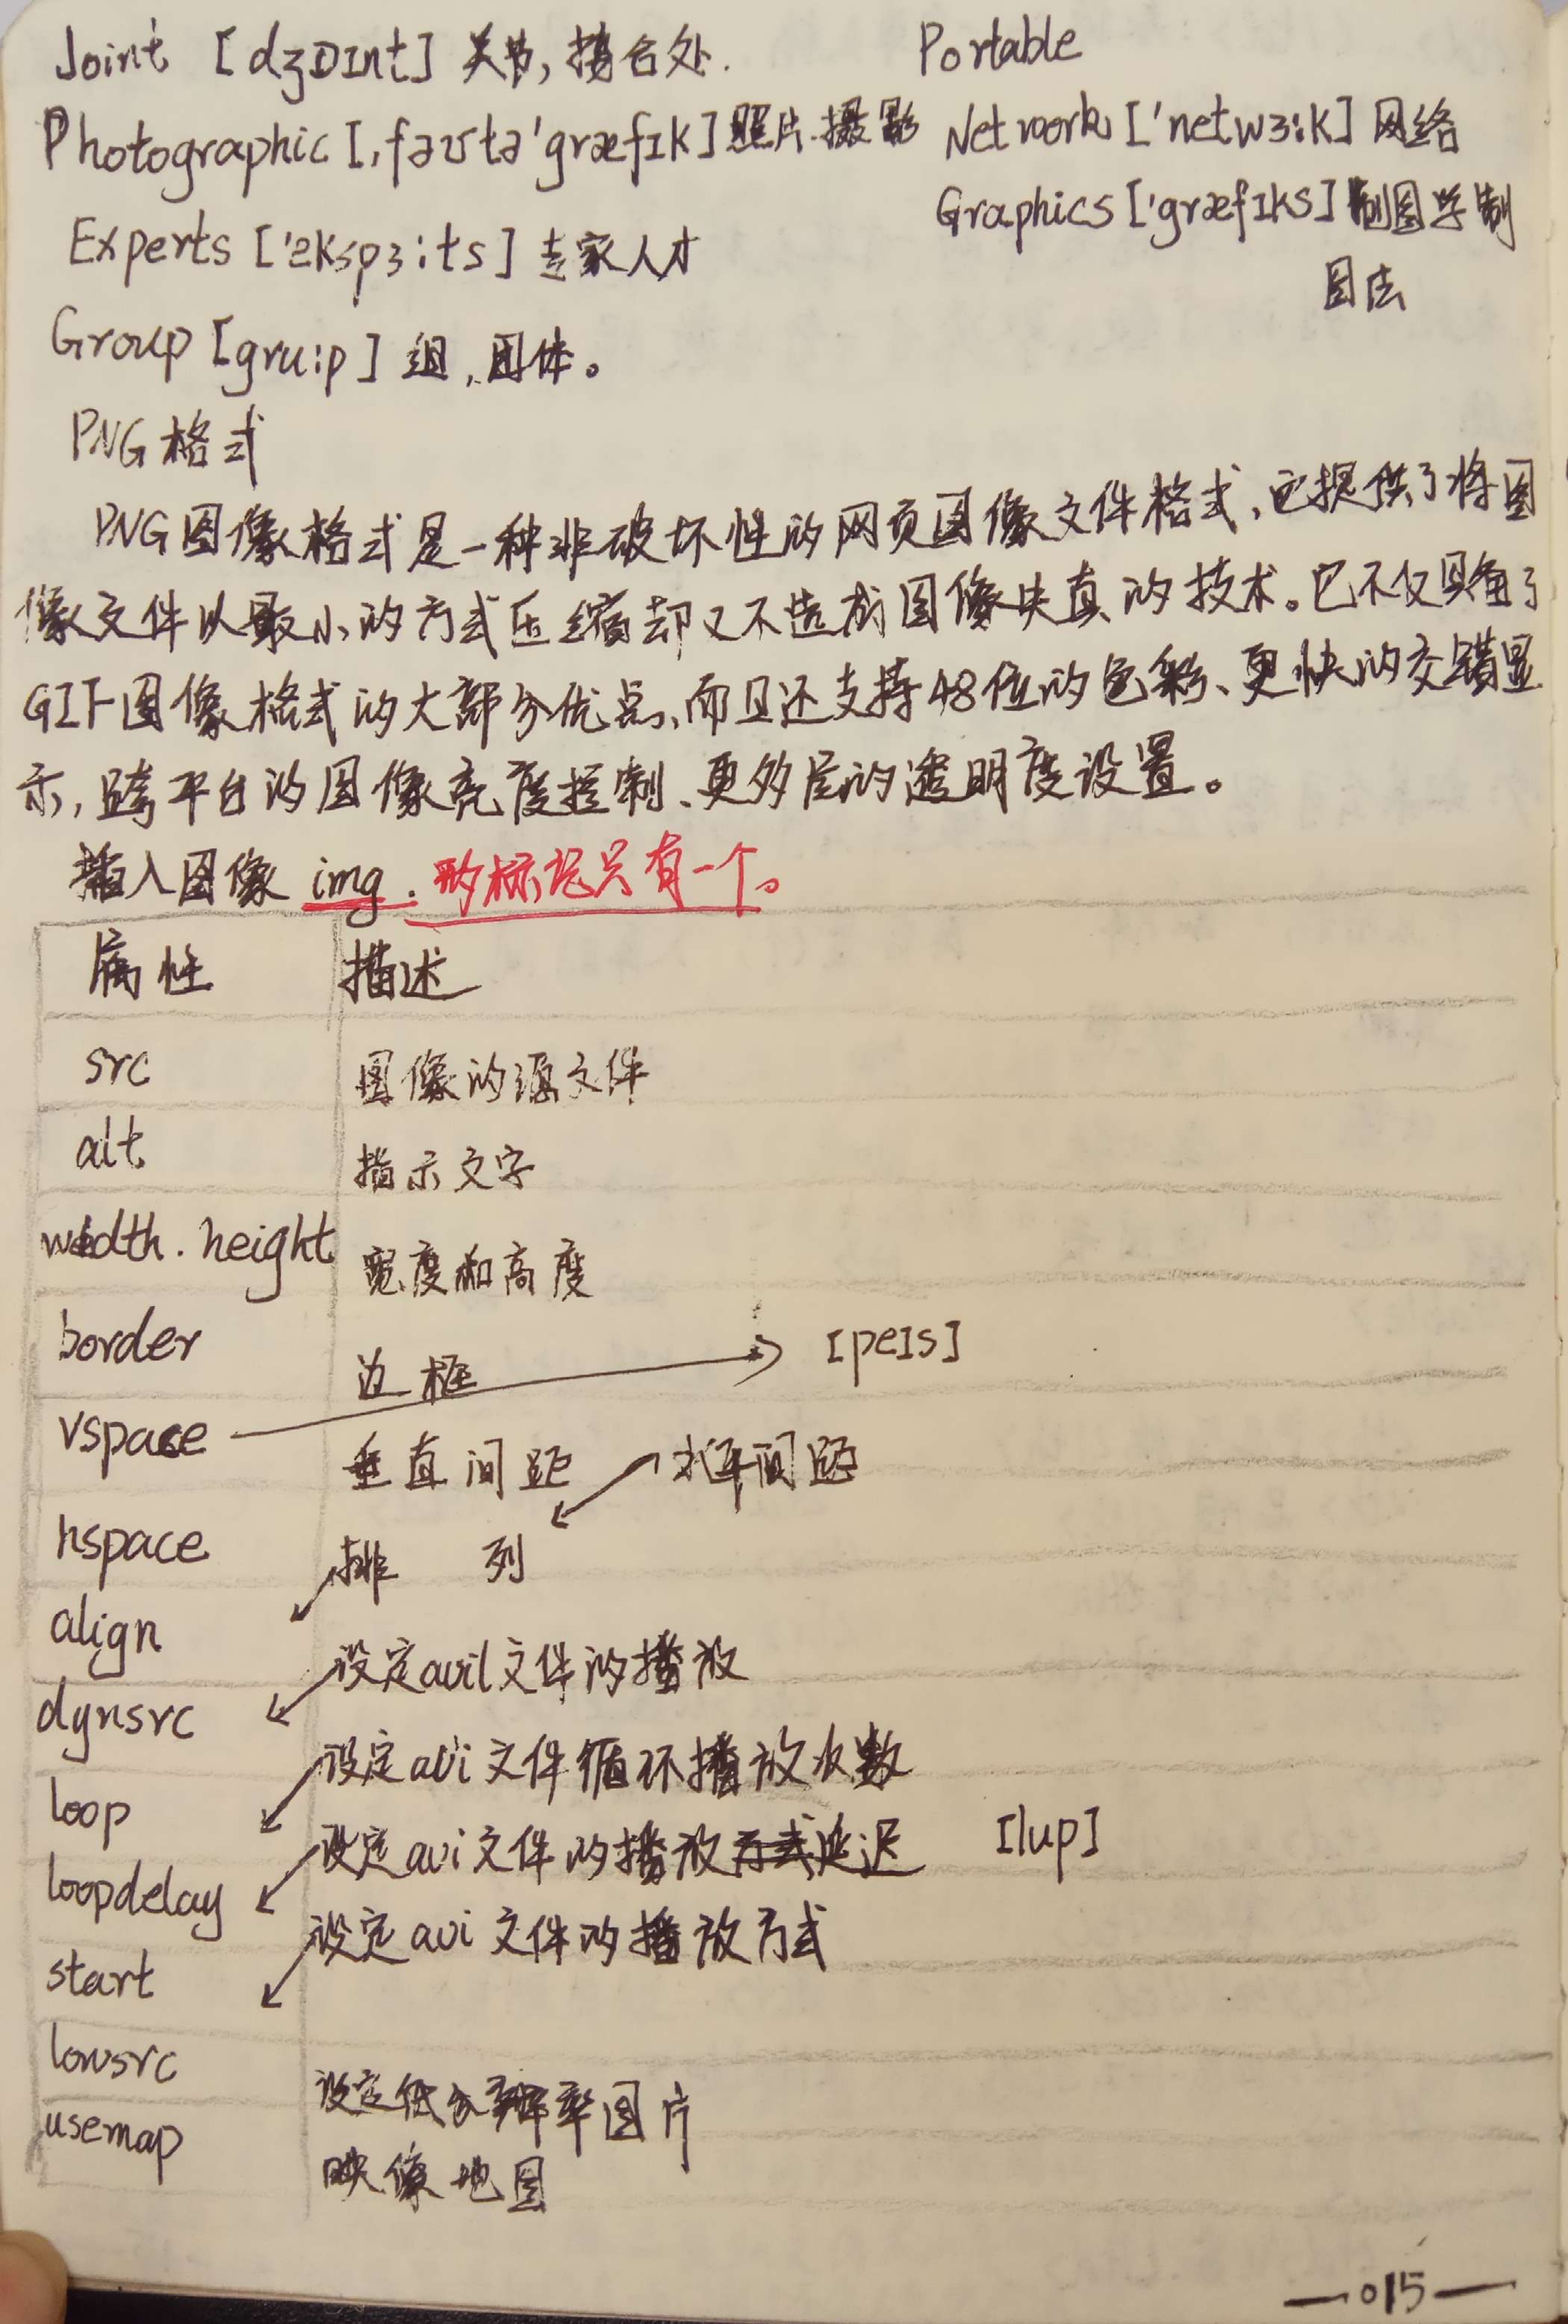 Joint [dʒɒɪnt] 关节,接合处.
Portable
Photographic [ˌfəʊtə'græfɪk] 照片.摄影
Network ['netwɜːk] 网络
Graphics ['græfɪks] 制图学制
图法
Experts ['ekspɜːts] 专家人才
Group [gruːp] 组,团体。
PNG格式
PNG图像格式是一种非破坏性的网页图像文件格式、它提供了将图
像文件以最小的方式压缩却又不造成图像失真的技术。它不仅具备了
GIF图像格式的大部分优点,而且还支持48位的色彩、更快的交错显
示,跨平台的图像亮度控制、更多层的透明度设置。
插入图像 img. 的标记只有一个。
属性 描述
src 图像的源文件
alt 指示文字
width.height 宽度和高度
border 边框
[peɪs]
vspace 垂直间距
水平间距
hspace 排 列
align 设定avil文件的播放
dynsrc 设定avi文件循环播放次数
loop 设定avi文件的播放方式延迟 [lup]
loopdelay 设定avi文件的播放方式
start
lowsrc 设定低分辨率图片
usemap 映像地图
—015—